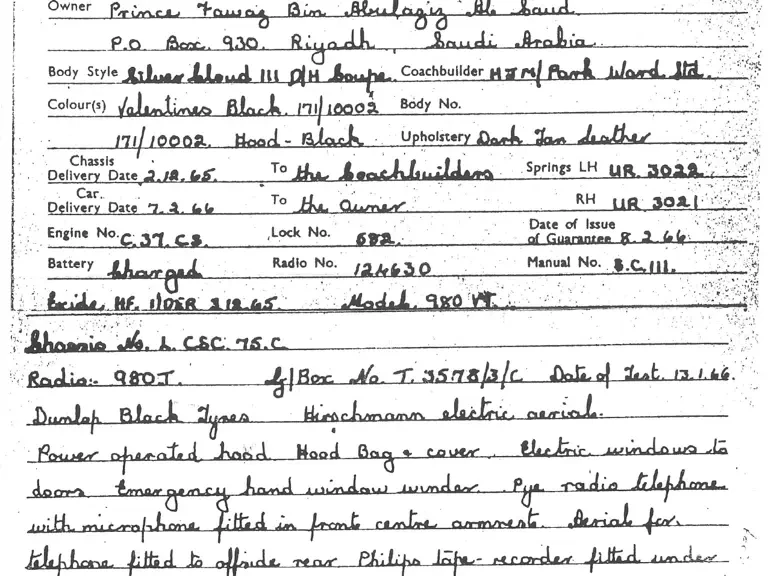 Owner Prince Fawaz Bin Abulaziz Al Saud.
P.O. Box. 930. Riyadh, Saudi Arabia
Body Style Silver Cloud III D/H Coupe. Coachbuilder HJM/Park Ward Ltd.
Colour(s) Valentines Black. 171/10002 Body No.
171/10002. Hood - Black Upholstery Dark Tan Leather
Chassis Delivery Date 2.12.65. To the Coachbuilders Springs LH UR. 3022
Car. Delivery Date 7.2.66 To the Owner. RH UR 3021
Engine No. C.37.CS. Lock No. 682. Date of Issue of Guarantee 8.2.66.
Battery Charged Radio No. 124630 Manual No. S.C.111.
Exide, HF. 1/DER 212.65. Model. 980 VT.
Chassis No. L. CSC. 75.C
Radio:- 980T. G/Box No. T. 3578/3/C Date of Test. 13.1.66.
Dunlop Black Tyres Hirschmann electric aerial.
Power operated hood. Hood Bag & cover. Electric windows to
doors. Emergency hand window winder. Pye radio telephone
with microphone fitted in front centre armrest. Aerial for
telephone fitted to offside rear Philips tape-recorder fitted under